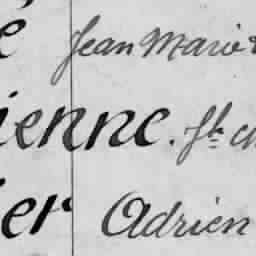 é Jean Marie
ienne. fk
ier Adrien